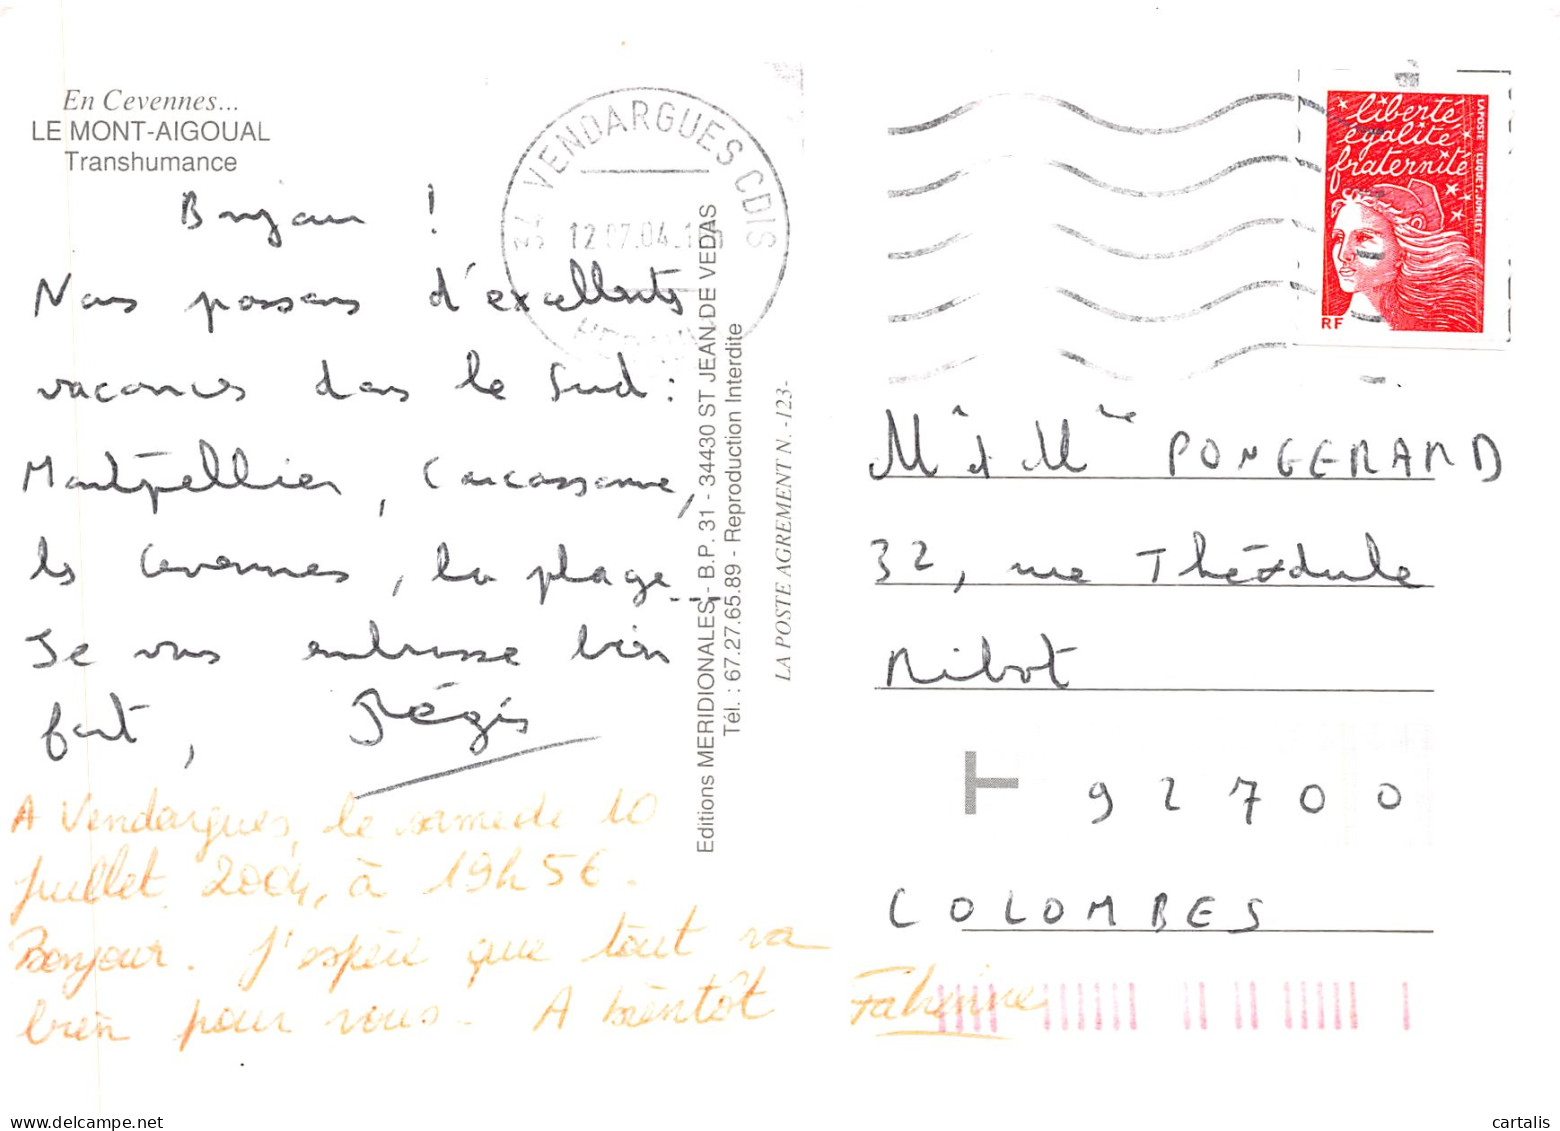 En Cevennes...
LE MONT-AIGOUAL
Transhumance
Bonjour !
Nous passons d'excellentes
vacances dans le Sud :
Montpellier, Carcassonne,
les Cevennes, la plage ---
Je vous embrasse bien
fort, Régis
A Vendargues, le samedi 10
juillet 2004, à 19h56.
Bonjour. J'espère que tout va
bien pour vous. A bientôt Fabienne
34 VENDARGUES CDIS
12.07.04
Editions MERIDIONALES - B.P. 31 - 34430 ST JEAN DE VEDAS
Tél. : 67.27.65.89 - Reproduction Interdite
LA POSTE AGREMENT N. -123-
liberté
égalité
fraternité
LA POSTE LUQUET-JUMELET
RF
Mr & Mme PONGERARD
32, rue Théodule
Ribot
T 92700
COLOMBES
www.delcampe.net
cartalis